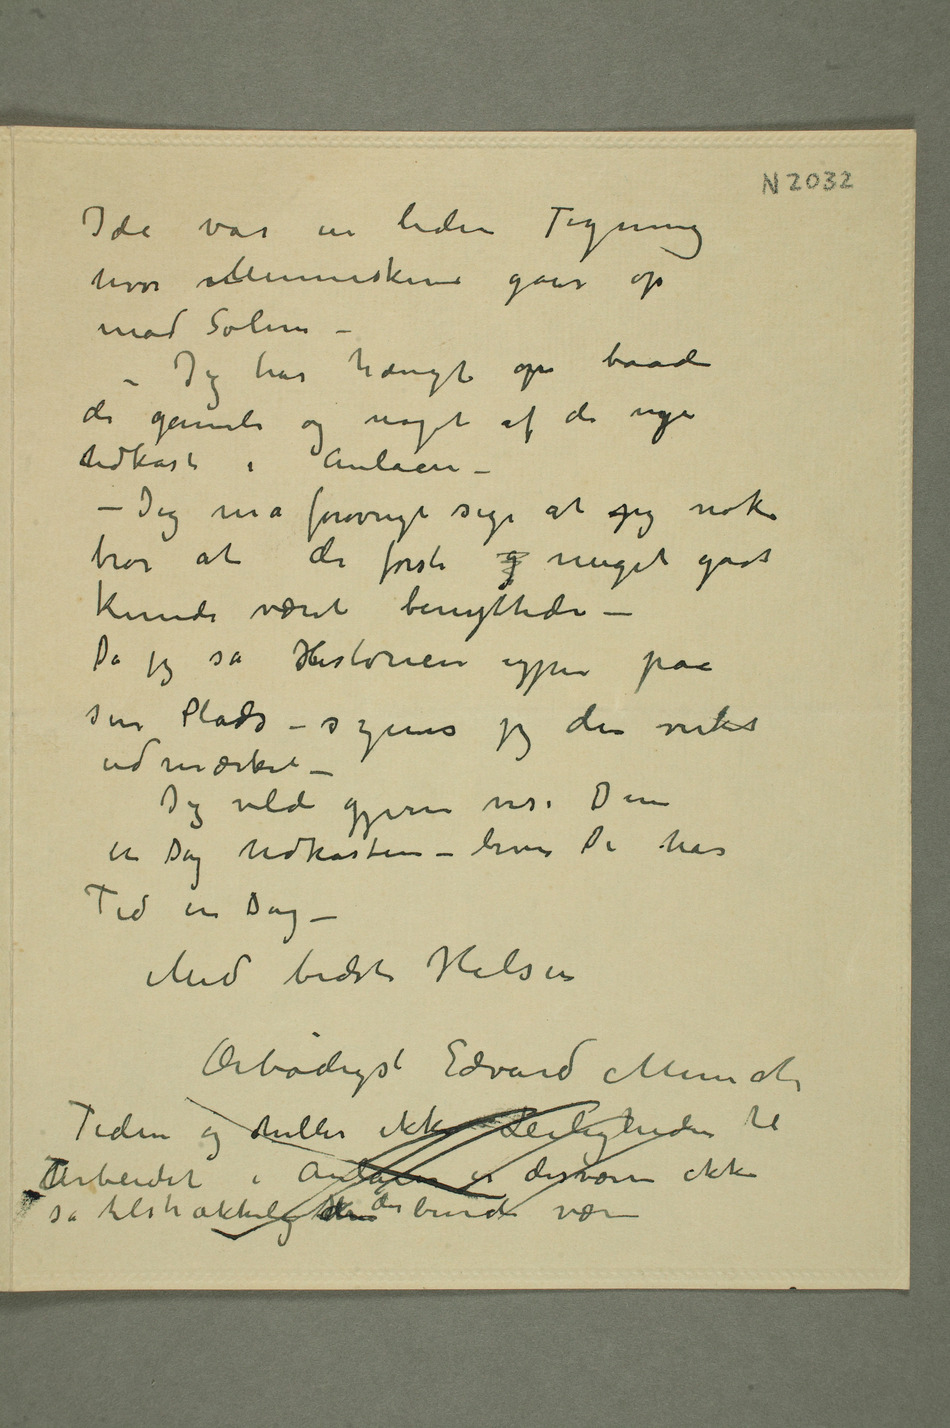 N 2032
Ide var en liden Tegning
hvor Menneskene gaar op
mod Solen –
– Jeg har hængt op baade
de gamle og noget af de nye
Udkast i Aulaen –
– Jeg må forøvrigt sige at jeg nok
tror at de første meget godt
kunde været benyttede –
Da jeg så Historien igjen paa
sin Plads – synes jeg den virket
udmærket –
Jeg vilde gjerne vise Dem
en Dag Udkastene – hvis De har
Tid en Dag –
Med bedste Hilsen
Ærbødigst Edvard Munch
Tiden og heller ikke Leiligheden til
Arbeidet i Aulaen er desværre ikke
så tilstrækkelig den burde være